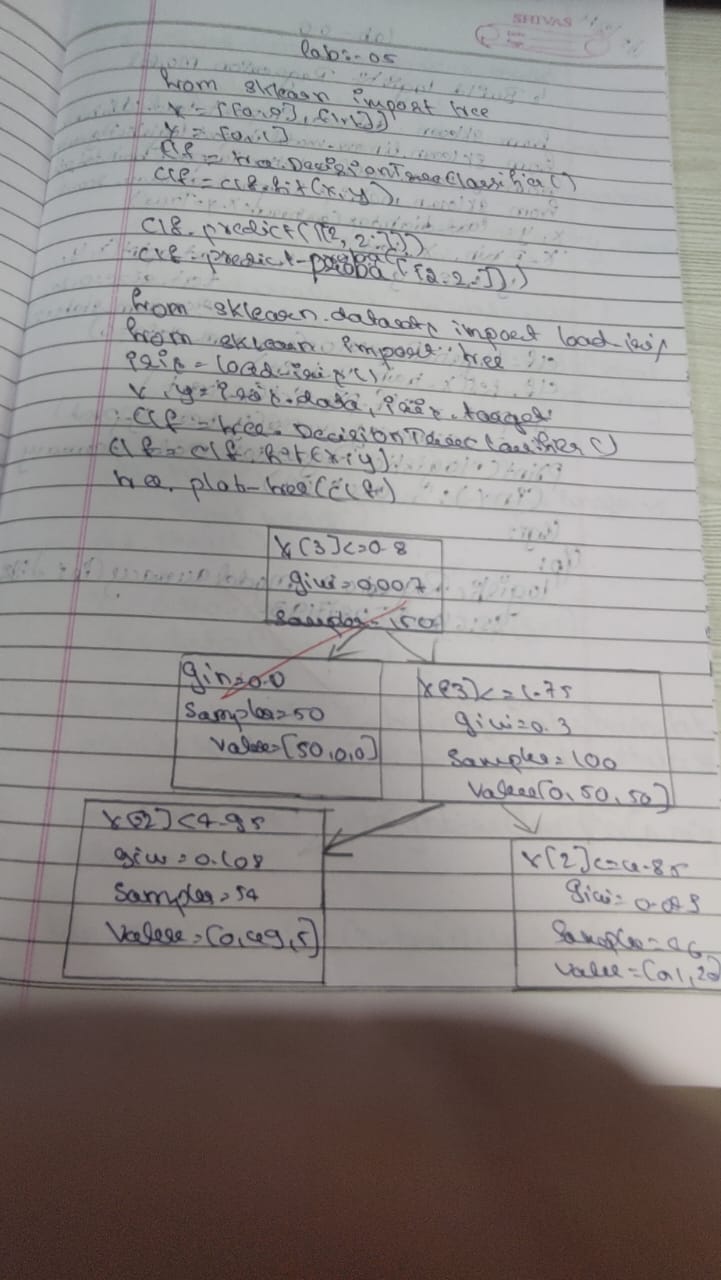 SHIVAS
Lab:-05
from sklearn import tree
X = [[0,0], [1,1]]
Y = [0,1]
clf = tree.DecisionTreeClassifier()
clf = clf.fit(x,y)
clf.predict([[2., 2.]])
clf.predict-proba([[2.2.]])
from sklearn.datasets import load-iris
from sklearn import tree
iris = load-iris()
x,y = iris.data, iris.target
clf = tree.DecisionTreeClassifier()
clf = clf.fit(x,y)
tree.plot-tree(clf)
X[3]<=0.8
gini=0.007
samples=150
gini=0.0
Samples=50
Value=[50,0,0]
X[3]<=1.75
gini=0.3
Samples=100
Value[0,50,50]
X[2]<4.95
gini=0.168
Samples=54
Value=[0,49,5]
X[2]<=4.85
gini=0.043
Samples=46
Value=[